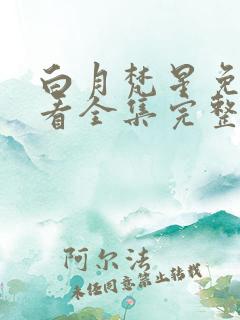 白月梵星免
看全集完整
阿尔法
未经同意禁止转载